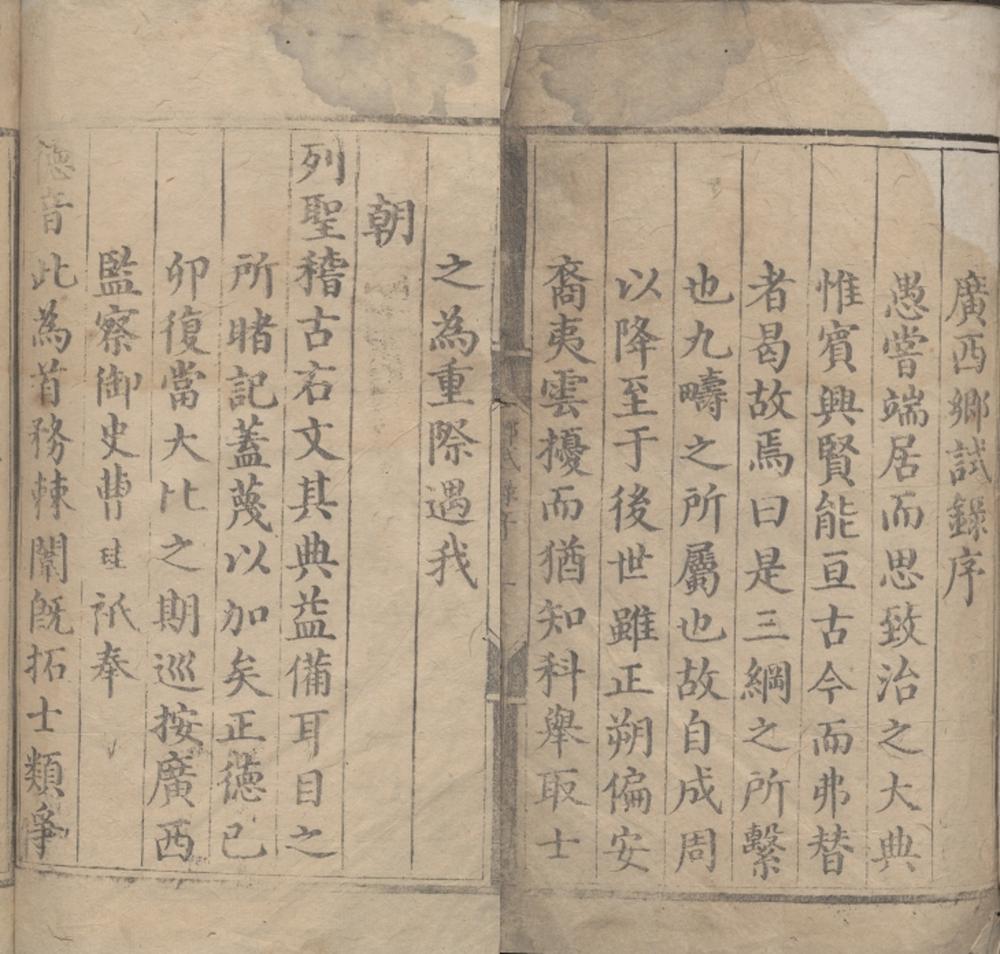 廣西鄉試錄序
愚嘗端居而思致治之大典
惟賓興賢能亘古今而弗替
者曷故焉曰是三綱之所繫
也九疇之所屬也故自成周
以降至于後世雖正朔偏安
裔夷雲擾而猶知科舉取士
之為重際遇我
朝
列聖稽古右文其典益備耳目之
所睹記蓋蔑以加矣正德己
卯復當大比之期巡按廣西
監察御史曹珪祇奉
德音此為首務棘闈既拓士類爭